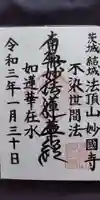 茨城 結城 法頂山 妙國寺
不染世間法
南無妙法蓮華經
如蓮華在水
令和三年一月三十日